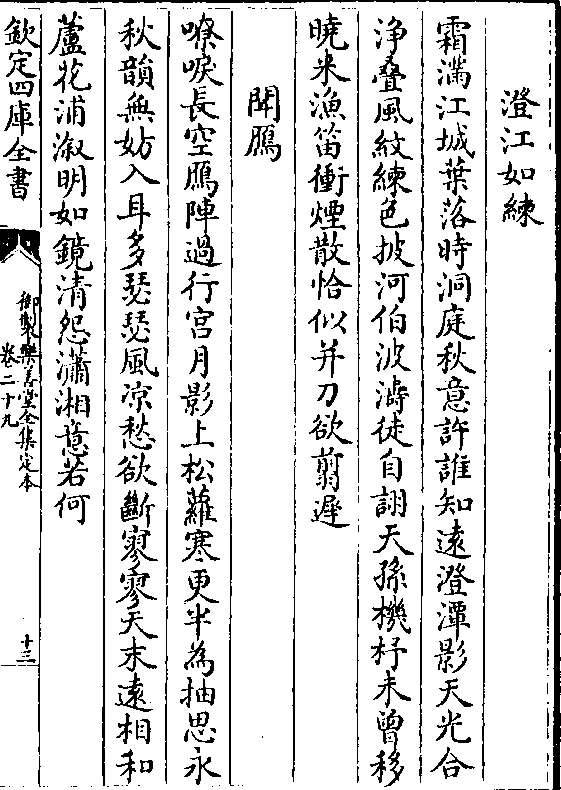 澄江如練
霜滿江城葉落時洞庭秋意許誰知遠澄潭影天光合
淨疊風紋練色披河伯波濤徒自詡天孫機杼未曾移
曉來漁笛衝煙散恰似并刀欲翦遲
聞鴈
嘹唳長空鴈陣過行宮月影上松蘿寒更半為抽思永
秋韻無妨入耳多瑟瑟風凉愁欲斷寥寥天末遠相和
蘆花浦溆明如鏡清怨瀟湘意若何
欽定四庫全書
御製樂善堂全集定本
卷二十九
十三